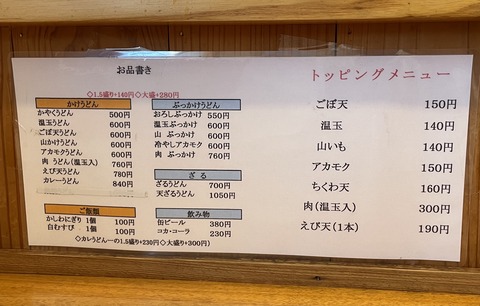 お品書き
◇1.5盛り+140円◇大盛+280円
かけうどん
かやくうどん 500円
温玉うどん 600円
ごぼ天うどん 600円
山かけうどん 600円
アカモクうどん 600円
肉 うどん(温玉入) 760円
えび天うどん 780円
カレーうどん 840円
ご飯類
かしわにぎり 1個 100円
白むすび 1個 100円
ぶっかけうどん
おろしぶっかけ 550円
温玉ぶっかけ 600円
山 ぶっかけ 600円
冷やしアカモク 600円
肉 ぶっかけ 760円
ざる
ざるうどん 700円
天ざるうどん 1050円
飲み物
缶ビール 380円
コカ・コーラ 230円
◇カレうどん一の1.5盛り+230円◇大盛り+300円)
トッピングメニュー
ごぼ天 150円
温玉 140円
山いも 140円
アカモク 150円
ちくわ天 160円
肉(温玉入) 300円
えび天(1本) 190円